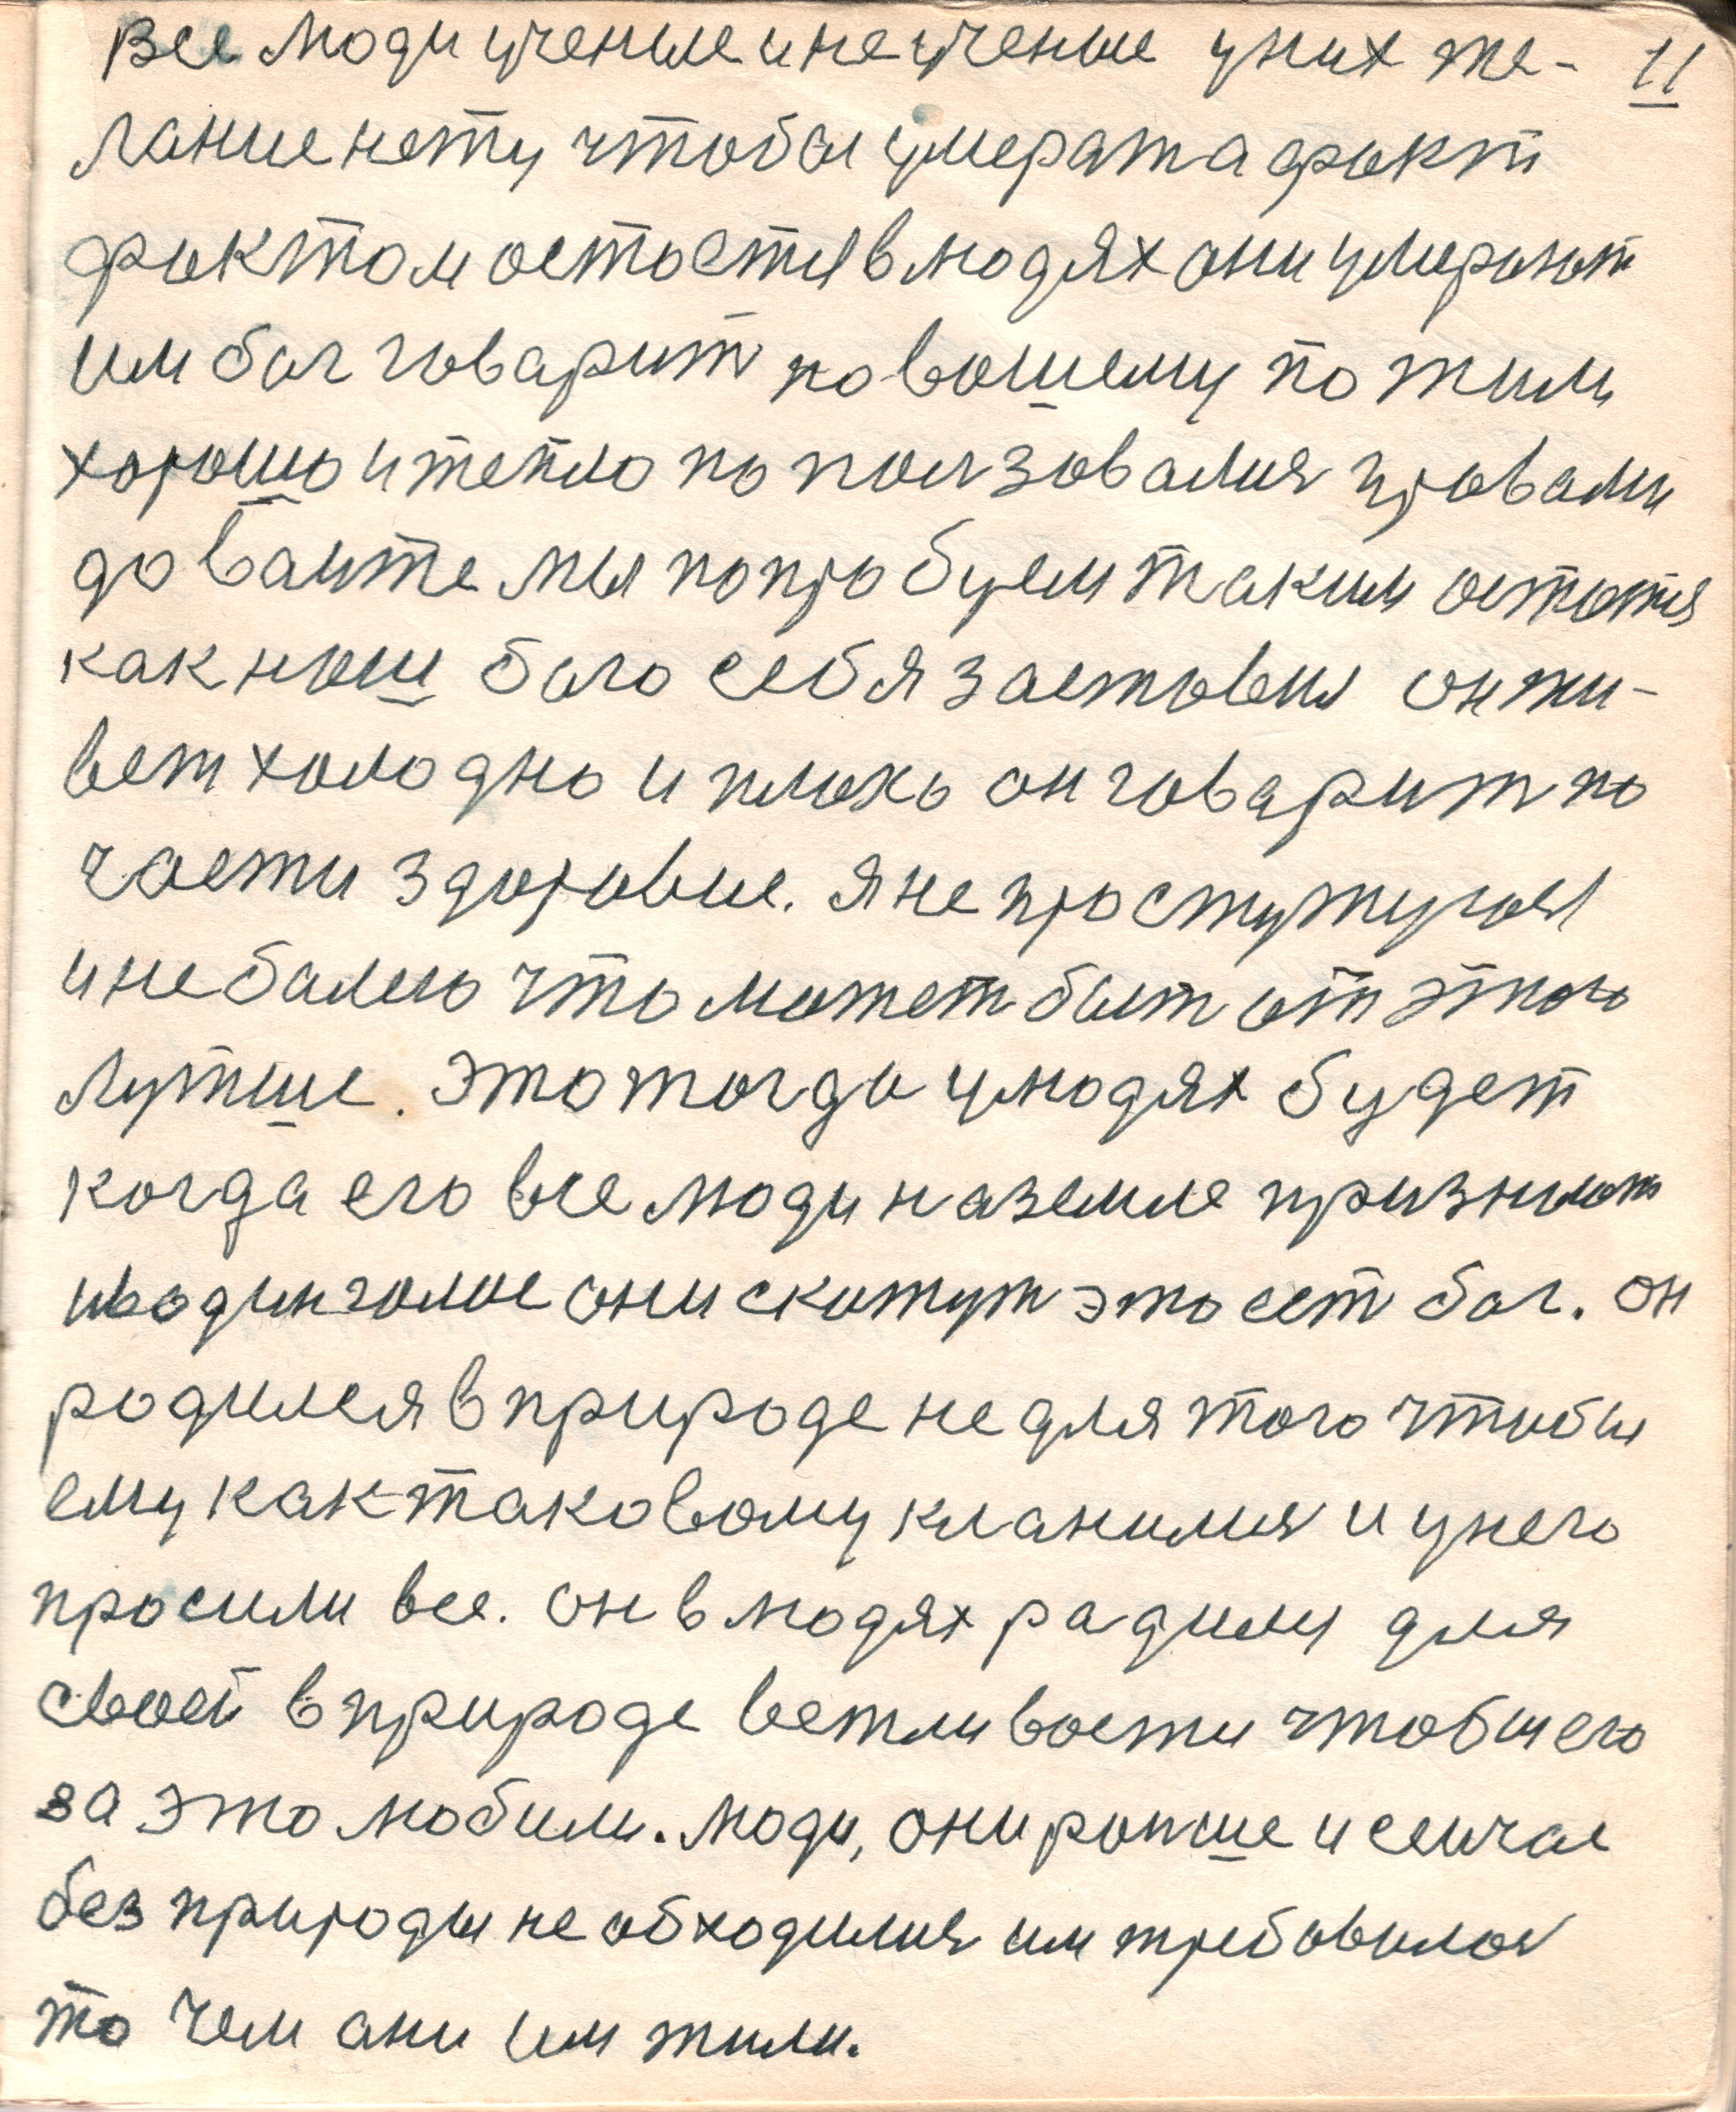 все люди ученые и не ученые у них же- 11
лание нету чтобы умерат а факт
фактом остается в людях они умерают
им бог говарит по вашему пожили
хорошо и тепло попользовалися провами
доваите мы попробуем таким остатся
как наш бого себя заставил он жи-
вет холодно и плохо он говарит по
части здоровие. Я не простужуюся
и не балею что может быт от этого
лутше. Это тогда у людях будет
когда его все люди на земле признают
и в один голос они скажут это ест бог. он
родился в природе не для того чтобы
ему как таковому кланилися и у него
просили все. он в людях радился для
своей в природе вежливости чтобы его
за это любили. люди, они раньше и сеичас
без природы не обходилися им требовалос
то чем ани им жили.